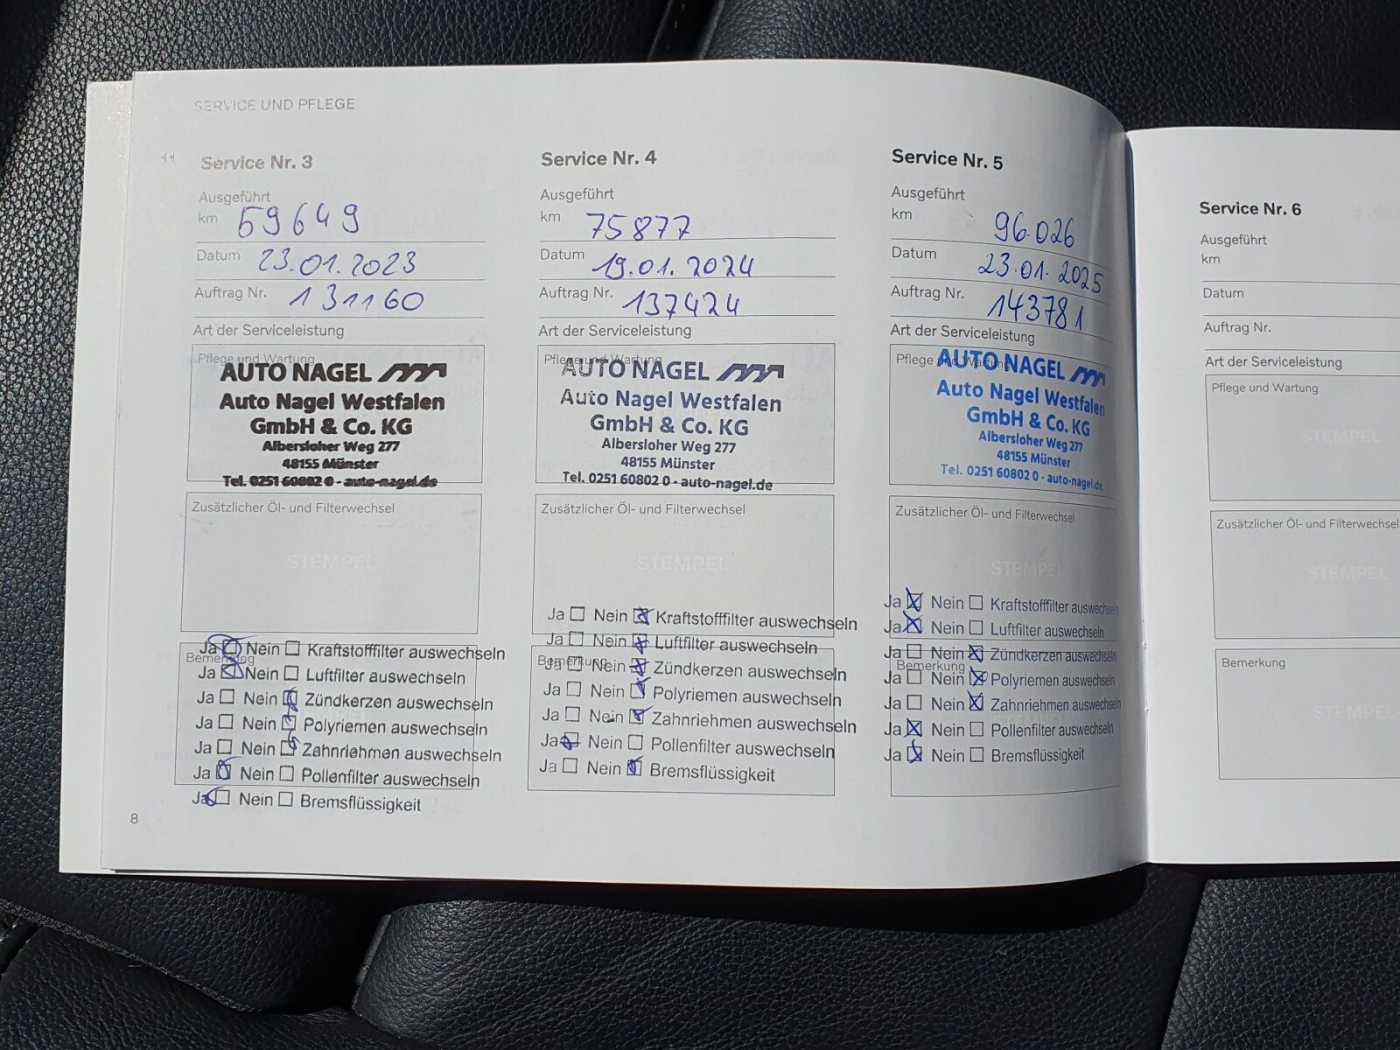 SERVICE UND PFLEGE
Service Nr. 3
Ausgeführt
km 59649
Datum 23.01.2023
Auftrag Nr. 131160
Art der Serviceleistung
Pflege und Wartung
AUTO NAGEL
Auto Nagel Westfalen
GmbH & Co. KG
Albersloher Weg 277
48155 Münster
Tel. 0251 60802 0 - auto-nagel.de
Zusätzlicher Öl- und Filterwechsel
STEMPEL
Bemerkung
Ja Nein Kraftstofffilter auswechseln
Ja Nein Luftfilter auswechseln
Ja Nein Zündkerzen auswechseln
Ja Nein Polyriemen auswechseln
Ja Nein Zahnriehmen auswechseln
Ja Nein Pollenfilter auswechseln
Ja Nein Bremsflüssigkeit
8
Service Nr. 4
Ausgeführt
km 75877
Datum 19.01.2024
Auftrag Nr. 137424
Art der Serviceleistung
Pflege und Wartung
AUTO NAGEL
Auto Nagel Westfalen
GmbH & Co. KG
Albersloher Weg 277
48155 Münster
Tel. 0251 60802 0 - auto-nagel.de
Zusätzlicher Öl- und Filterwechsel
STEMPEL
Ja Nein Kraftstofffilter auswechseln
Ja Nein Luftfilter auswechseln
Bemerkung
Ja Nein Zündkerzen auswechseln
Ja Nein Polyriemen auswechseln
Ja Nein Zahnriehmen auswechseln
Ja Nein Pollenfilter auswechseln
Ja Nein Bremsflüssigkeit
Service Nr. 5
Ausgeführt
km 96.026
Datum 23.01.2025
Auftrag Nr. 143781
Art der Serviceleistung
Pflege und Wartung
AUTO NAGEL
Auto Nagel Westfalen
GmbH & Co. KG
Albersloher Weg 277
48155 Münster
Tel. 0251 60802 0 - auto-nagel.de
Zusätzlicher Öl- und Filterwechsel
STEMPEL
Ja Nein Kraftstofffilter auswechseln
Ja Nein Luftfilter auswechseln
Ja Nein Zündkerzen auswechseln
Bemerkung
Ja Nein Polyriemen auswechseln
Ja Nein Zahnriehmen auswechseln
Ja Nein Pollenfilter auswechseln
Ja Nein Bremsflüssigkeit
Service Nr. 6
Ausgeführt
km
Datum
Auftrag Nr.
Art der Serviceleistung
Pflege und Wartung
STEMPEL
Zusätzlicher Öl- und Filterwechsel
STEMPEL
Bemerkung
STEMPEL